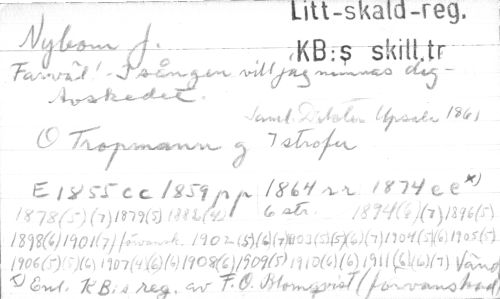 Litt-skald-reg.
Nybom J. KB:s skill.tr
Farväl! I sången vill jag nämnas dig -
Avskedet.
Saml. Dikter Upsala 1861
O Tropmann g 7 strofer
E 1855 cc 1859 pp 1864 rr 1874 ee x)
1878(5)(7) 1879(5) 1882(4) 6 str. 1894(6)(7) 1896(5)
1898(6) 1901(7) förvansk. 1902(5)(6)(7) 1903(5)(5)(6)(7) 1904(5)(6) 1905(5)
1906(5)(5)(6) 1907(4)(6)(6) 1908(6) 1909(5) 1910(6)(6) 1911(6)(6)(7)
x) Enl. KB:s reg. av F.O. Blomqvist (förvanskad)